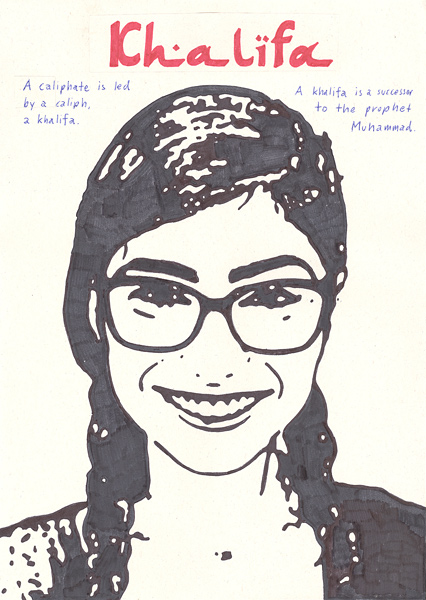 Khalïfa
A caliphate is led
by a caliph,
a khalifa.
A khalifa is a successor
to the prophet
Muhammad.